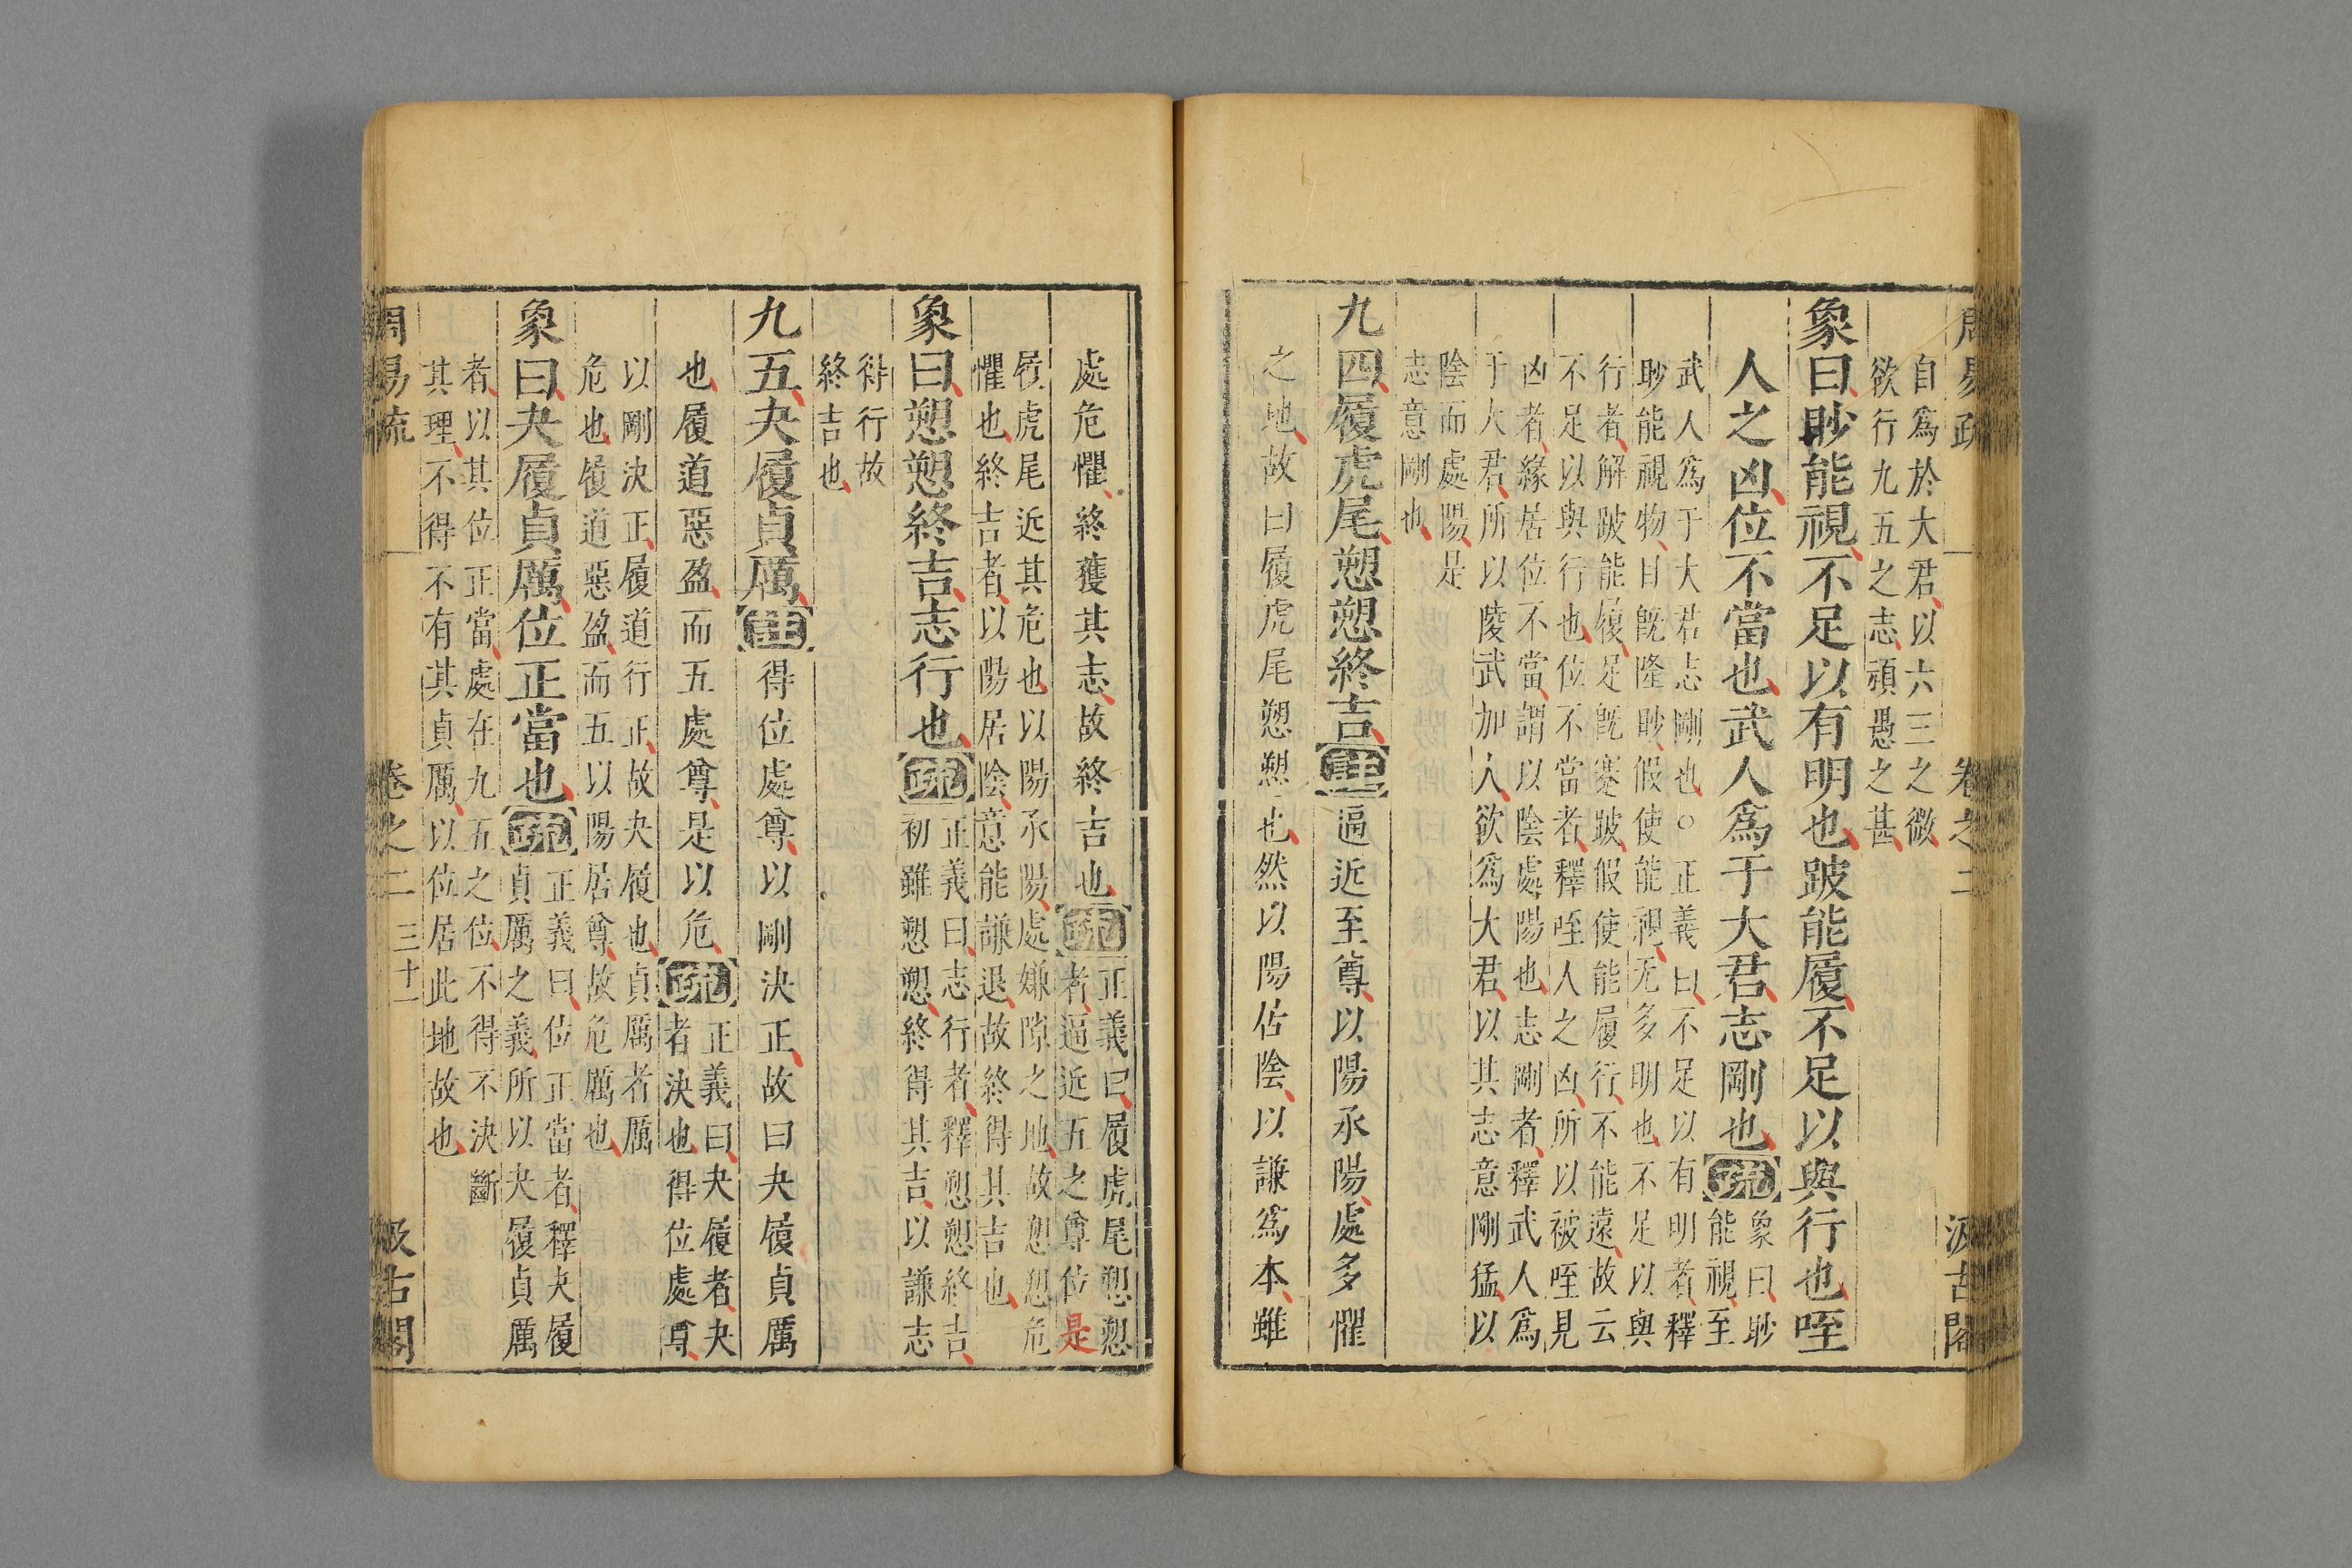 周易疏
卷之二
汲古閣
自爲於大君以六三之微
欲行九五之志頑愚之甚
象曰眇能視不足以有明也跛能履不足以與行也咥
人之凶位不當也武人爲于大君志剛也
疏
象曰眇
能視至
武人爲于大君志剛也○正義曰不足以有明者釋
眇能視物目旣隆眇假使能視无多明也不足以與
行者解跛能履足旣蹇跛假使能履行不能遠故云
不足以與行也位不當者釋咥人之凶所以被咥見
凶者緣居位不當謂以陰處陽也志剛者釋武人爲
于大君所以陵武加人欲爲大君以其志意剛猛以
陰而處陽是
志意剛也
九四履虎尾愬愬終吉
註
逼近至尊以陽承陽處多懼
之地故曰履虎尾愬愬也然以陽居陰以謙爲本雖
處危懼終獲其志故終吉也
疏
正義曰履虎尾愬愬
者逼近五之尊位是
履虎尾近其危也以陽承陽處嫌隙之地故愬愬危
懼也終吉者以陽居陰意能謙退故終得其吉也
象曰愬愬終吉志行也
疏
正義曰志行者釋愬愬終吉
初雖愬愬終得其吉以謙志
得行故
終吉也
九五夬履貞厲
註
得位處尊以剛決正故曰夬履貞厲
也履道惡盈而五處尊是以危
疏
正義曰夬履者夬
者決也得位處尊
以剛決正履道行正故夬履也貞厲者厲
危也履道惡盈而五以陽居尊故危厲也
象曰夬履貞厲位正當也
疏
正義曰位正當者釋夬履
貞厲之義所以夬履貞厲
者以其位正當處在九五之位不得不決斷
其理不得不有其貞厲以位居此地故也
周易疏
卷之二
三十一
汲古閣